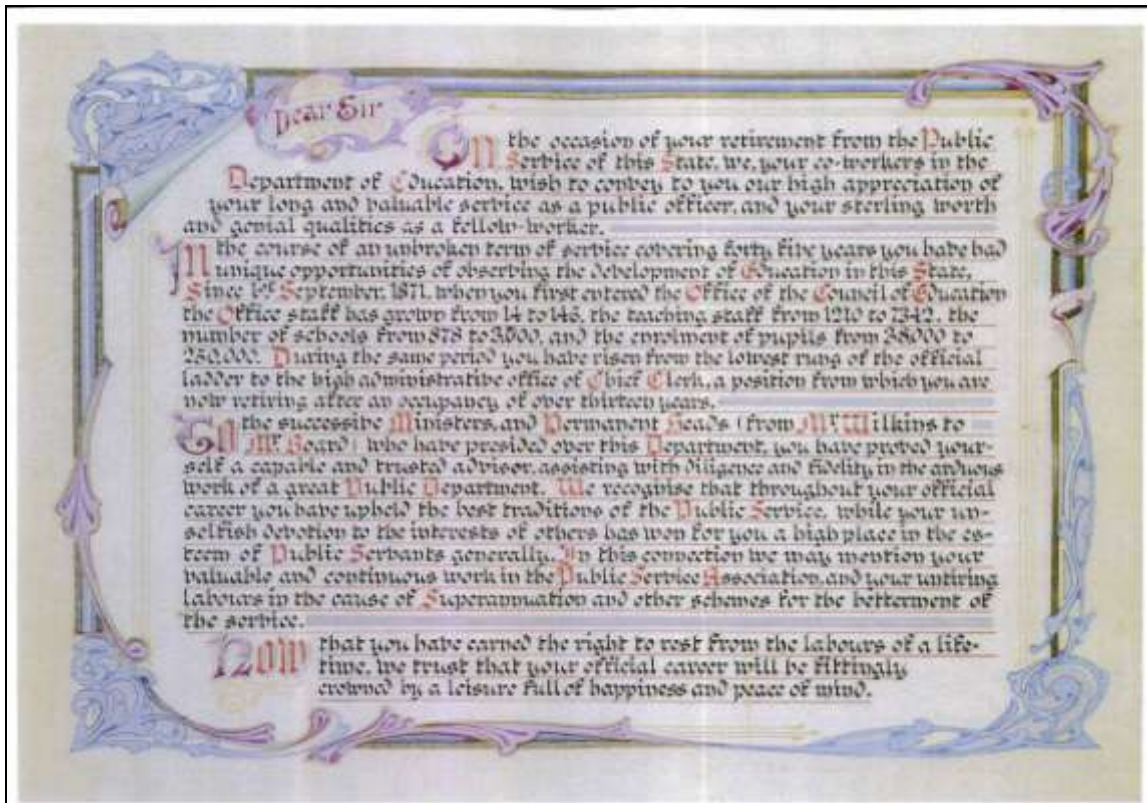 Dear Sir
On the occasion of your retirement from the Public
Service of this State, we, your co-workers in the
Department of Education, wish to convey to you our high appreciation of
your long and valuable service as a public officer, and your sterling worth
and genial qualities as a fellow-worker.
In the course of an unbroken term of service covering forty five years you have had
unique opportunities of observing the development of Education in this State,
Since 1st September, 1871, when you first entered the Office of the Council of Education
the Office staff has grown from 14 to 146, the teaching staff from 1210 to 7342, the
number of schools from 878 to 3,500, and the enrolment of pupils from 38000 to
250,000. During the same period you have risen from the lowest rung of the official
ladder to the high administrative office of Chief Clerk, a position from which you are
now retiring after an occupancy of over thirteen years.
To the successive Ministers, and Permanent Heads (from Mr. Wilkins to
Mr. Board) who have presided over this Department, you have proved your-
self a capable and trusted advisor, assisting with diligence and fidelity in the arduous
work of a great Public Department. We recognise that throughout your official
career you have upheld the best traditions of the Public Service, while your un-
selfish devotion to the interests of others has won for you a high place in the es-
teem of Public Servants generally. In this connection we may mention your
valuable and continuous work in the Public Service Association, and your untiring
labours in the cause of Superannuation and other schemes for the betterment of
the service.
Now that you have earned the right to rest from the labours of a life-
time, we trust that your official career will be fittingly
crowned by a leisure full of happiness and peace of mind.